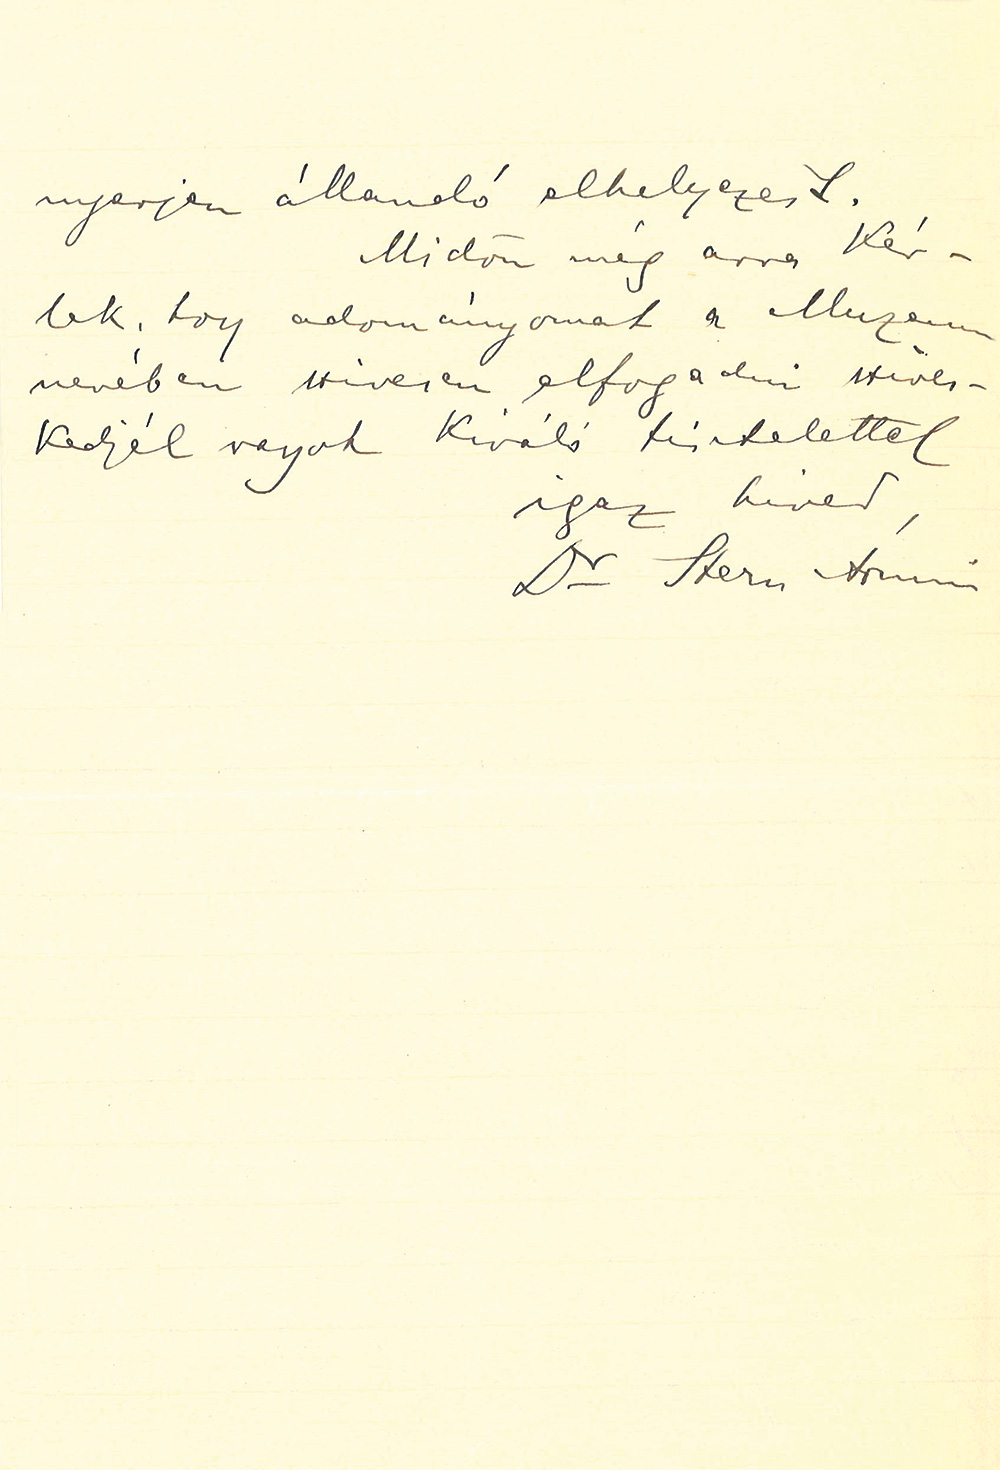 nyerjen állandó elhelyezést.
Midőn még arra kér-
lek, hogy adományomat a Muzeum
nevében szivesen elfogadni szives-
kedjél vagyok kiváló tisztelettel
igaz hived,
Dr Stern Ármin